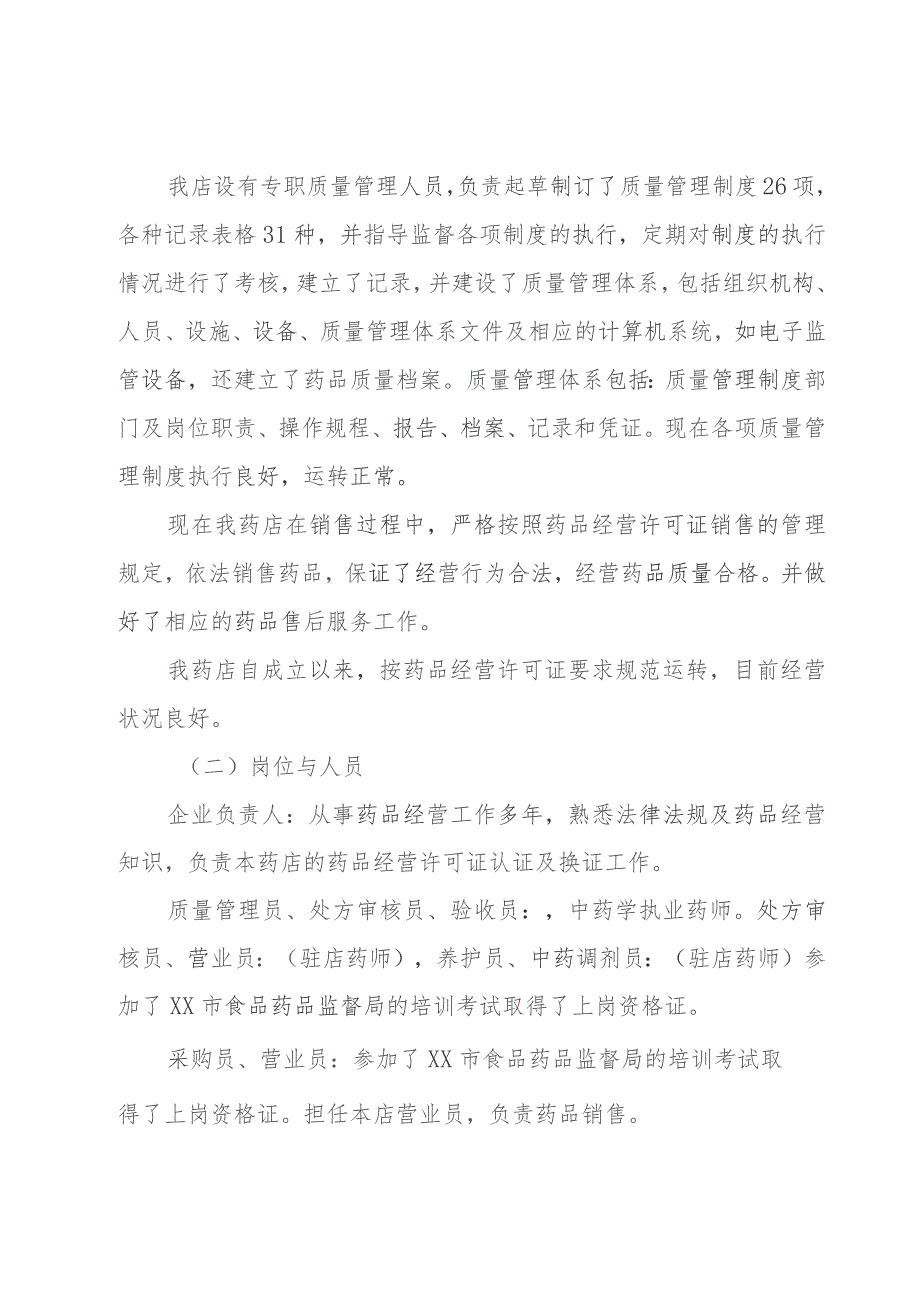 我店设有专职质量管理人员,负责起草制订了质量管理制度26项,
各种记录表格31种，并指导监督各项制度的执行，定期对制度的执行
情况进行了考核,建立了记录,并建设了质量管理体系,包括组织机构、
人员、设施、设备、质量管理体系文件及相应的计算机系统，如电子监
管设备，还建立了药品质量档案。质量管理体系包括:质量管理制度部
门及岗位职责、操作规程、报告、档案、记录和凭证。现在各项质量管
理制度执行良好，运转正常。
现在我药店在销售过程中，严格按照药品经营许可证销售的管理
规定，依法销售药品，保证了经营行为合法，经营药品质量合格。并做
好了相应的药品售后服务工作。
我药店自成立以来，按药品经营许可证要求规范运转，目前经营
状况良好。
（二）岗位与人员
企业负责人：从事药品经营工作多年，熟悉法律法规及药品经营
知识，负责本药店的药品经营许可证认证及换证工作。
质量管理员、处方审核员、验收员：，中药学执业药师。处方审
核员、营业员：（驻店药师），养护员、中药调剂员：（驻店药师）参
加了XX市食品药品监督局的培训考试取得了上岗资格证。
采购员、营业员：参加了XX市食品药品监督局的培训考试取
得了上岗资格证。担任本店营业员，负责药品销售。